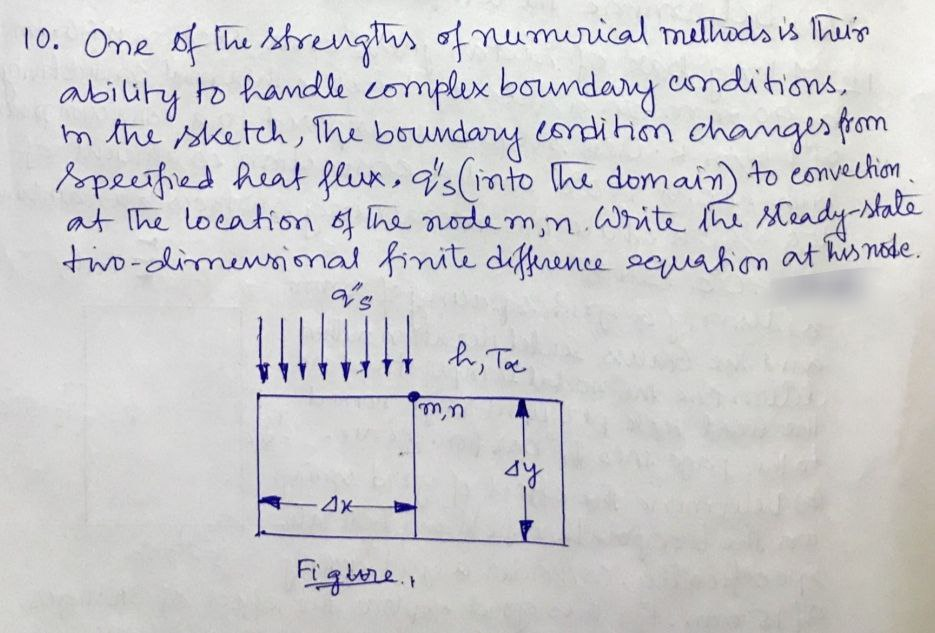 10. One of the strengths of numerical methods is their
ability to handle complex boundary conditions.
In the sketch, The boundary condition changes from
specified heat flux, q"s (into the domain) to convection.
at the location of the node m,n. Write the steady-state
two-dimensional finite difference equation at this node.
q"s
h, T∝
m,n
Δy
Δx
Figure.